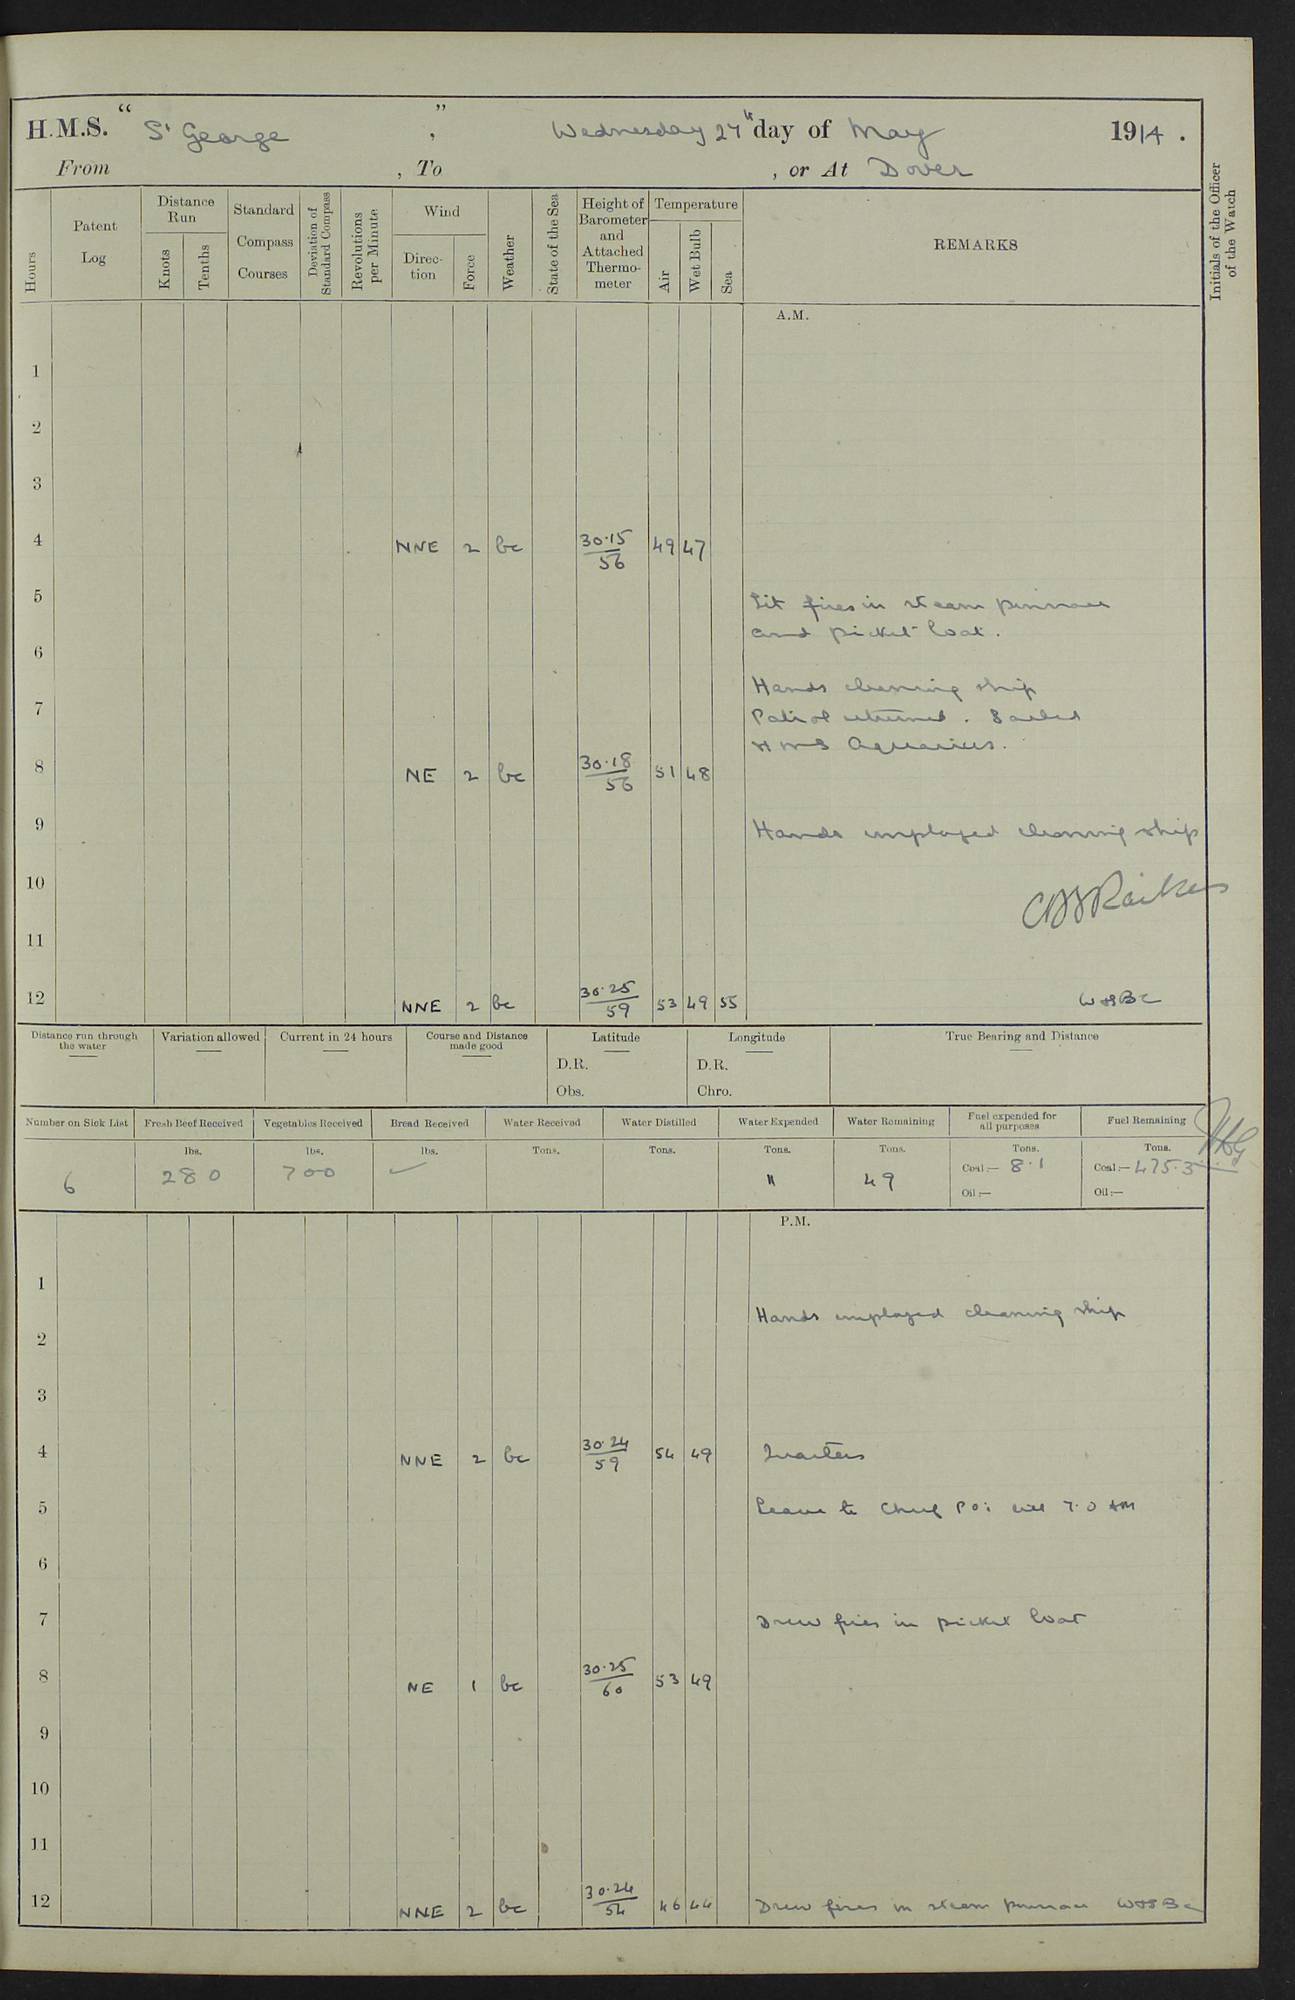 H.M.S. "St George", Wednesday 27th day of May 1914.
From , To , or At Dover
Hours
Patent Log
Distance Run
Knots
Tenths
Standard Compass Courses
Deviation of Standard Compass
Revolutions per Minute
Wind
Direction
Force
Weather
State of the Sea
Height of Barometer and Attached Thermometer
Temperature
Air
Wet Bulb
Sea
REMARKS
Initials of the Officer of the Watch
A.M.
1
2
3
4 NNE 2 bc 30.15/56 49 47
5 Lit fires in steam pinnace
and picket boat.
6
Hands cleaning ship
7 Patrol returned. Sailed
HMS Aquarius.
8 NE 2 bc 30.18/56 51 48
9 Hands employed cleaning ship
10
Raikes
11
12 NNE 2 bc 30.25/59 53 49 55
Distance run through the water
Variation allowed
Current in 24 hours
Course and Distance made good
Latitude
D.R.
Obs.
Longitude
D.R.
Chro.
True Bearing and Distance
Number on Sick List
6
Fresh Beef Received
lbs.
280
Vegetables Received
lbs.
700
Bread Received
lbs.
Water Received
Tons.
Water Distilled
Tons.
Water Expended
Tons.
11
Water Remaining
Tons.
49
Fuel expended for all purposes
Tons.
Coal:— 8.1
Oil:—
Fuel Remaining
Tons.
Coal:— 475.3
Oil:—
P.M.
1
Hands employed cleaning ship
2
3
4 NNE 2 bc 30.24/59 54 49 Quarters
5 Leave to Chief POs till 7.0 AM
6
7 Drew fires in picket boat
8 NE 1 bc 30.25/60 53 49
9
10
11
12 NNE 2 bc 30.24/54 46 44 Drew fires in steam pinnace